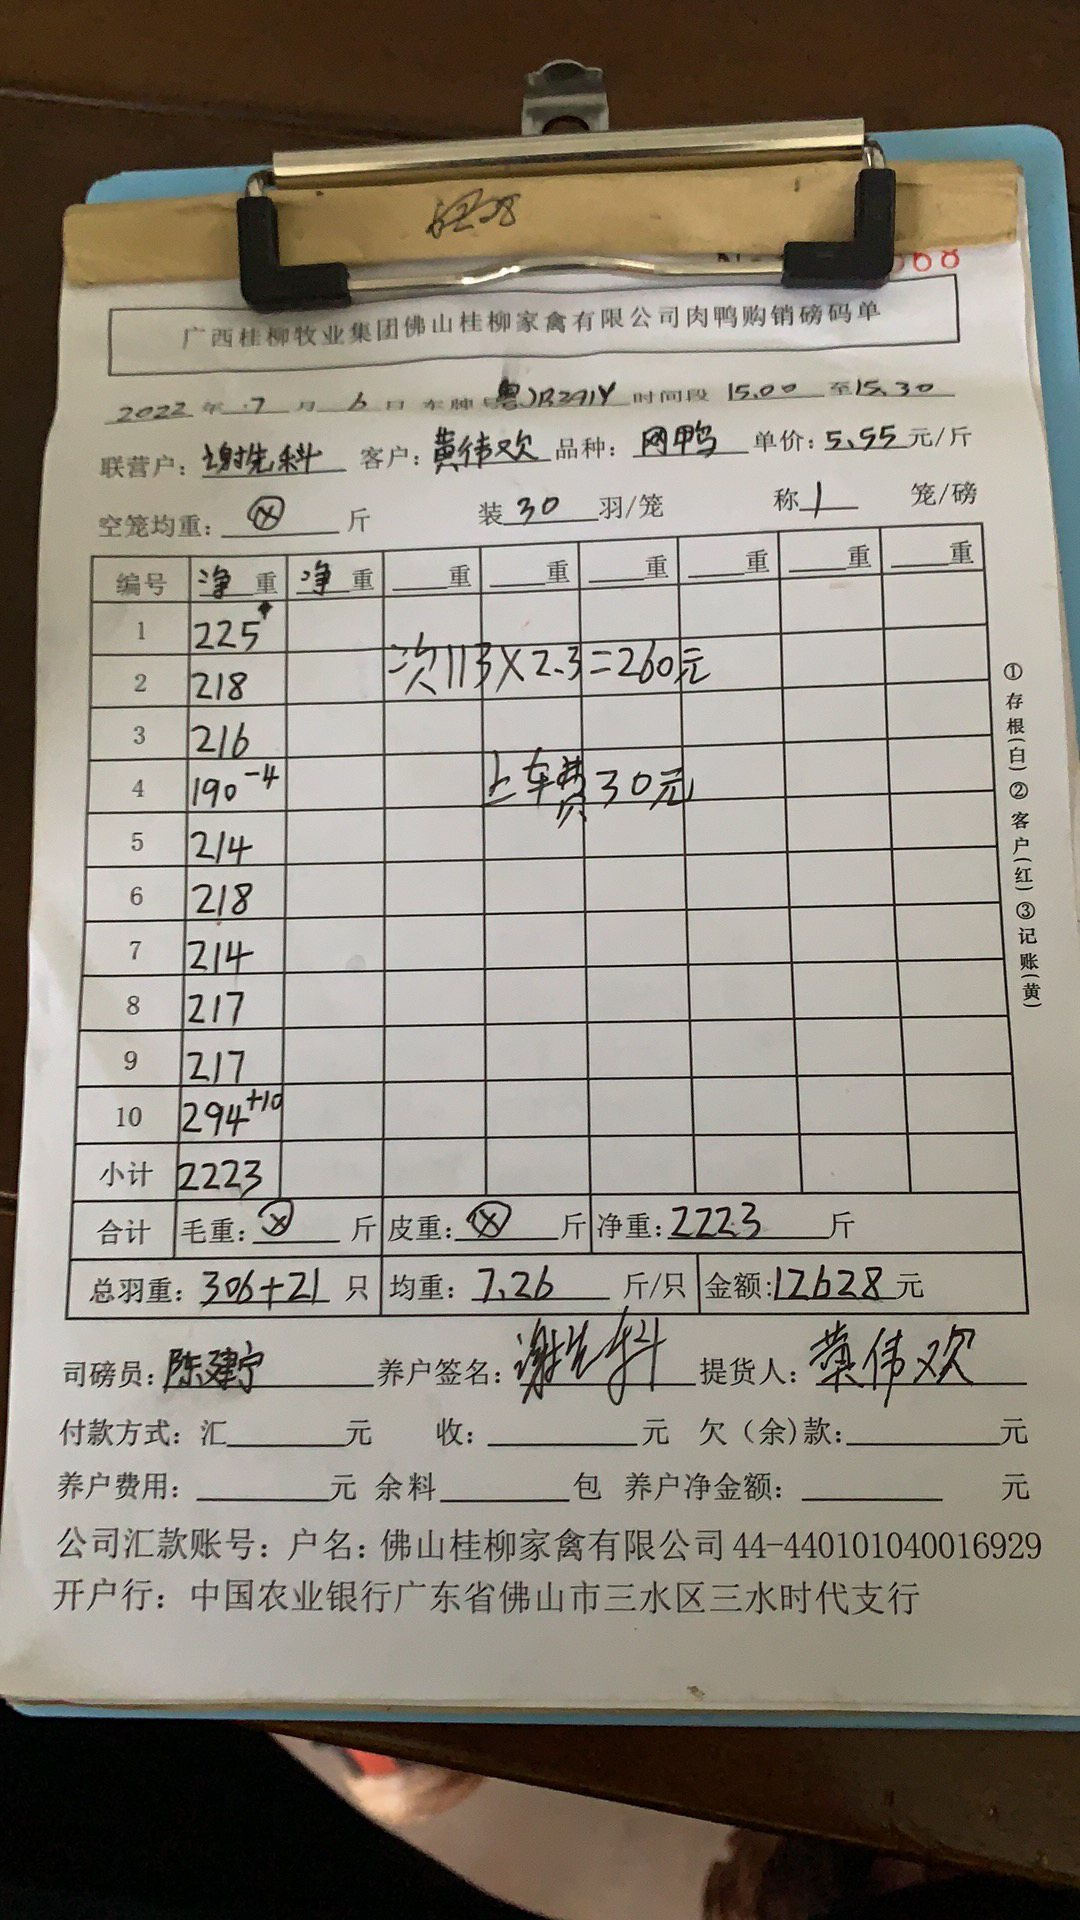 68
广西桂柳牧业集团佛山桂柳家禽有限公司肉鸭购销磅码单
2022 年 7 月 6 日 车牌号 粤JR291Y 时间段 15.00 至 15.30
联营户: 谢先科 客户: 黄伟欢 品种: 网鸭 单价: 5.55 元/斤
空笼均重: ⊗ 斤 装 30 羽/笼 称 1 笼/磅
编号 净重 净重 重 重 重 重 重 重
1 225
2 218 次113×2.3=260元
3 216
4 190-4 上车费30元
5 214
6 218
7 214
8 217
9 217
10 294+10
小计 2223
合计 毛重: ⊗ 斤 皮重: ⊗ 斤 净重: 2223 斤
总羽重: 306+21 只 均重: 7.26 斤/只 金额: 12628 元
司磅员: 陈建宁 养户签名: 谢先科 提货人: 黄伟欢
付款方式: 汇 元 收: 元 欠(余)款: 元
养户费用: 元 余料 包 养户净金额: 元
公司汇款账号: 户名: 佛山桂柳家禽有限公司 44-440101040016929
开户行: 中国农业银行广东省佛山市三水区三水时代支行
①存根(白)②客户(红)③记账(黄)